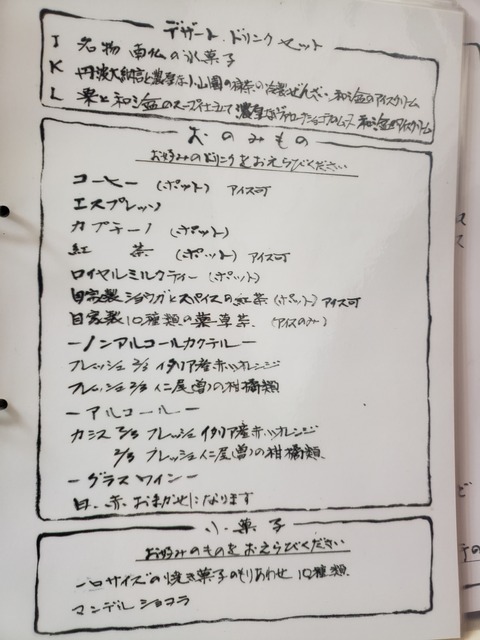 デザート・ドリンクセット
I 名物 南仏の氷菓子
K 丹波大納言と濃厚な小山園の抹茶の冷製ぜんざい 和三盆のアイスクリーム
L 栗と和三盆のスープ仕立て 濃厚なヴァローナショコラのムース 和三盆のアイスクリーム
おのみもの
お好みのドリンクをおえらびください
コーヒー (ポット) アイス可
エスプレッソ
カプチーノ (ポット)
紅 茶 (ポット) アイス可
ロイヤルミルクティー (ポット)
自家製 ショウガとスパイスの紅茶 (ポット) アイス可
自家製 10種類の薬草茶 (アイスのみ)
―ノンアルコールカクテル―
フレッシュ イタリア産赤いオレンジ
フレッシュ 仁尾(曽)の柑橘類
―アルコール―
カシス フレッシュイタリア産赤いオレンジ
フレッシュ仁尾(曽)の柑橘類
―グラスワイン―
白、赤 おまかせになります
小菓子
お好みのものをおえらびください
一口サイズの焼き菓子のもりあわせ 10種類
マンデルショコラ